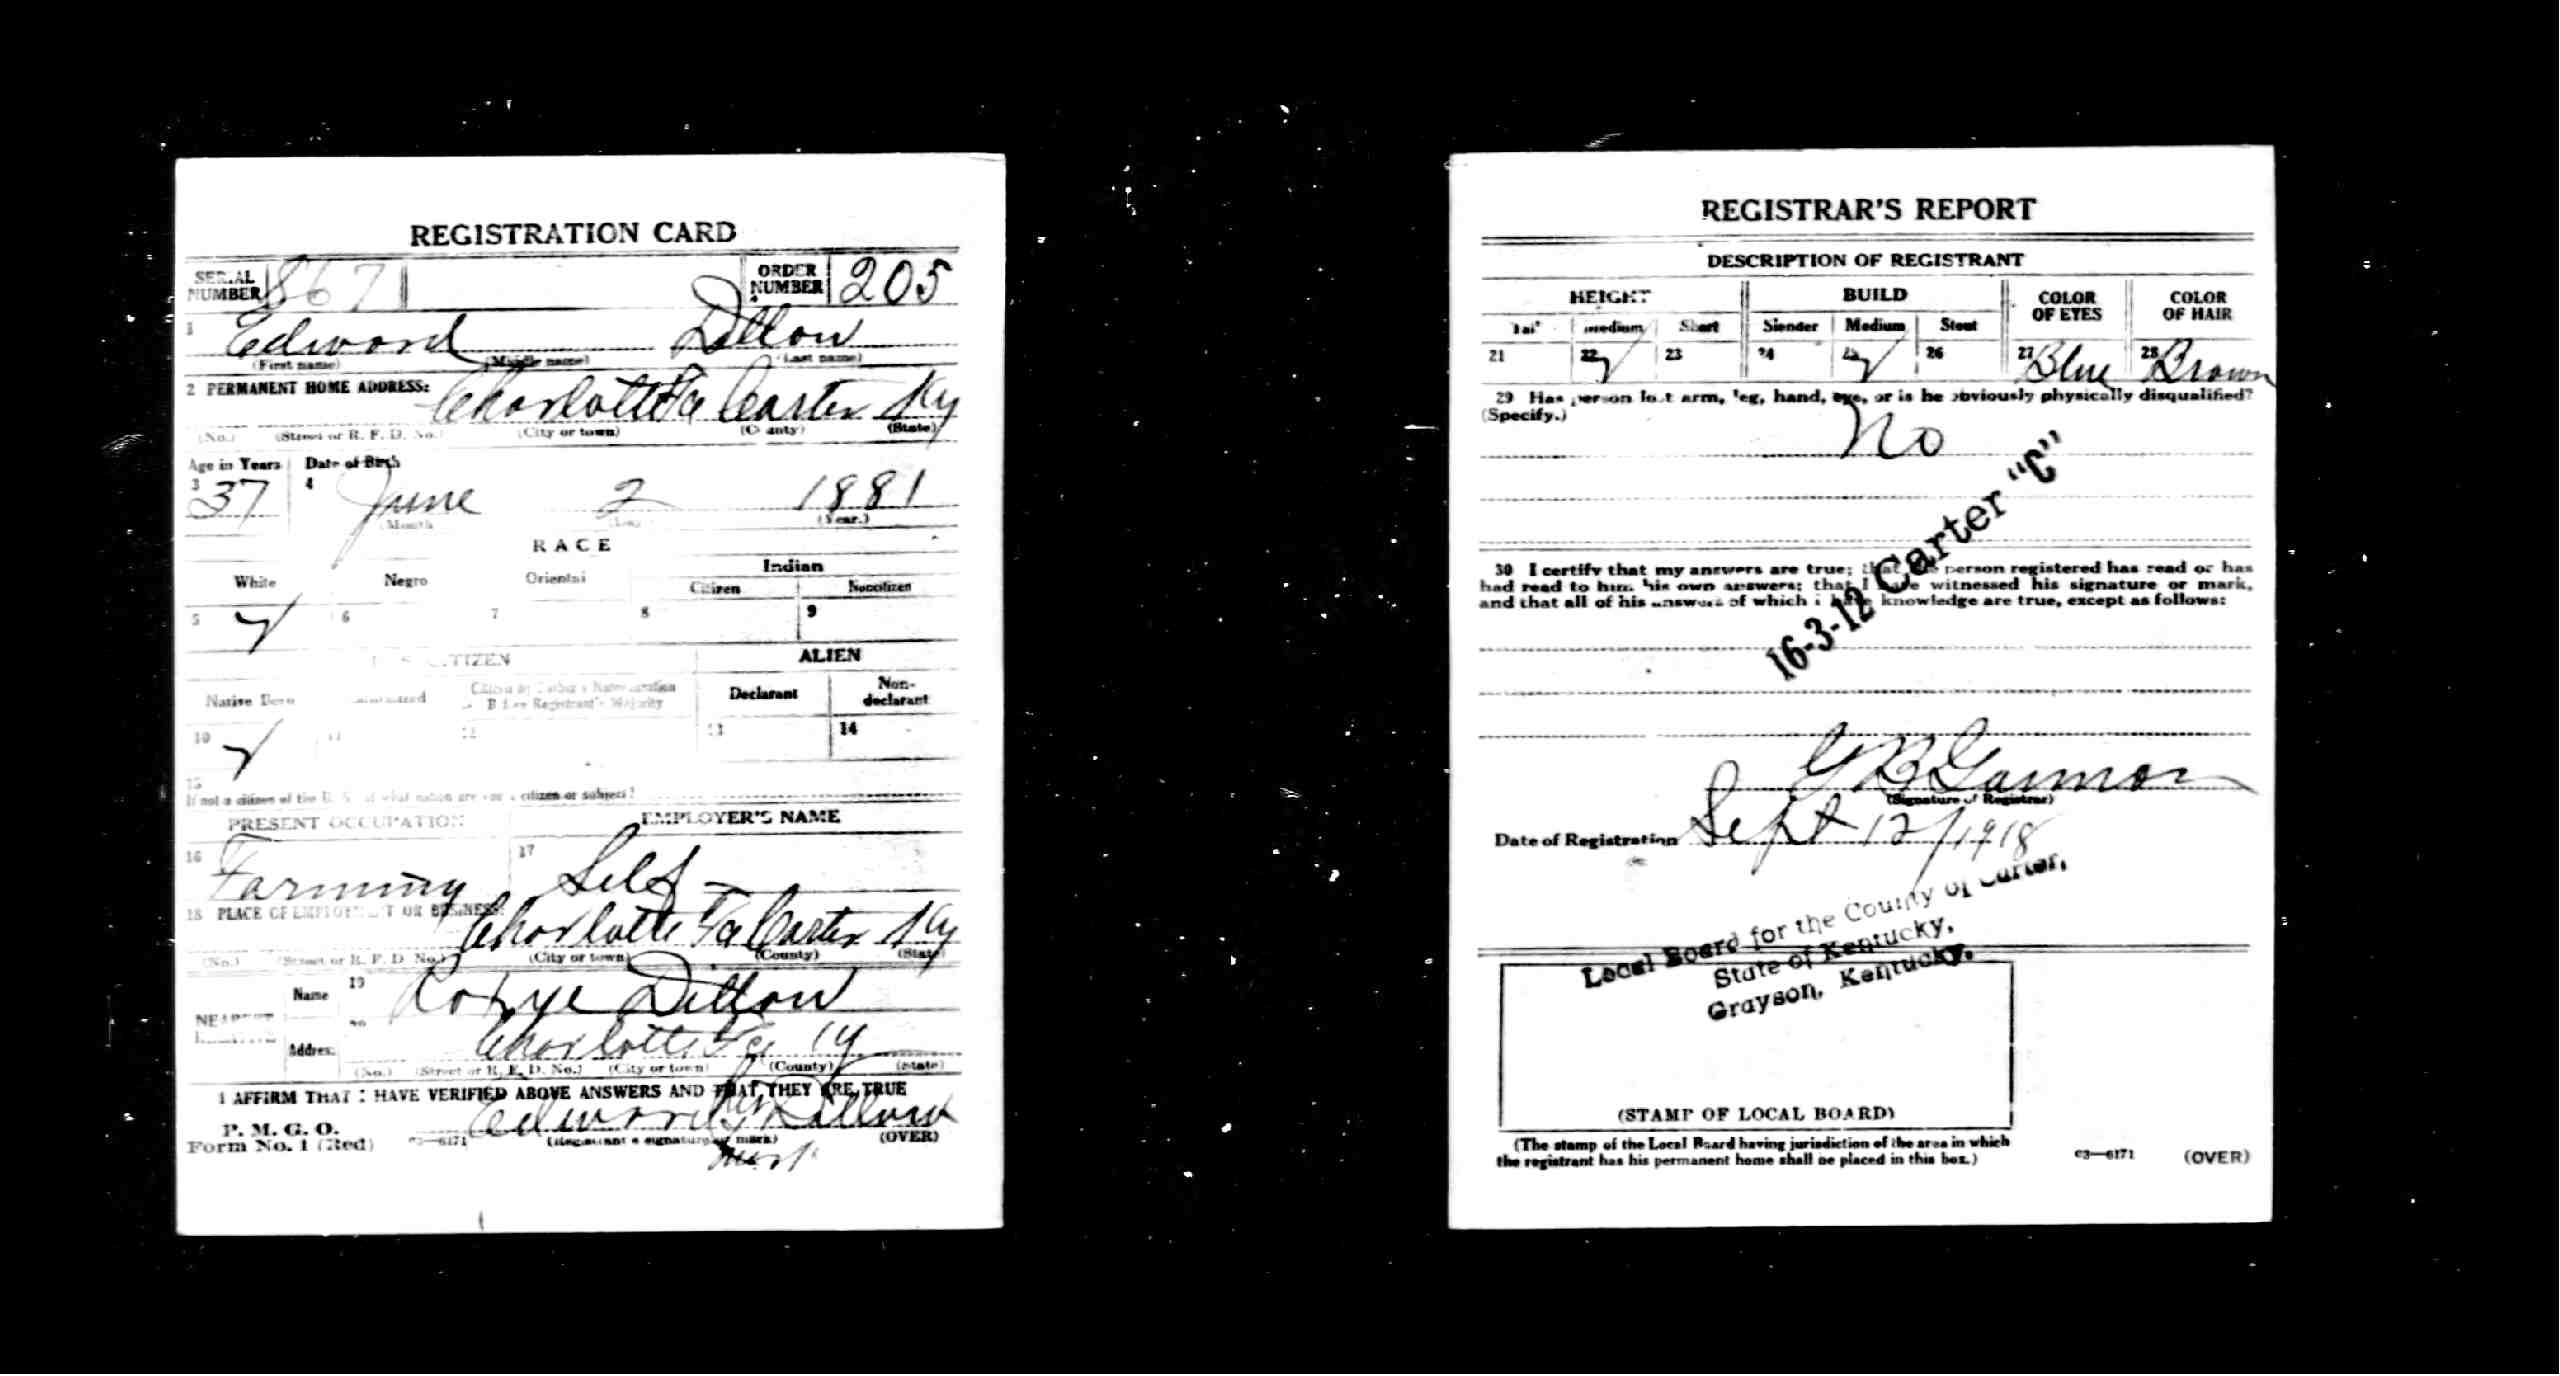 REGISTRATION CARD
SERIAL NUMBER 867 ORDER NUMBER 205
1 Edward Dillow
(First name) (Middle name) (Last name)
2 PERMANENT HOME ADDRESS: Charlotte Fa Carter Ky
(No.) (Street or R. F. D. No.) (City or town) (County) (State)
Age in Years Date of Birth
3 37 4 June 2 1881
(Month (Day) (Year.)
RACE
White Negro Oriental Indian
Citizen Noncitizen
5 6 7 8 9
U. S. CITIZEN ALIEN
Native Born Naturalized Citizen by Father's Naturalization Before Registrant's Majority Declarant Non-declarant
10 11 12 13 14
15
If not a citizen of the U. S., of what nation are you a citizen or subject?
PRESENT OCCUPATION EMPLOYER'S NAME
16 Farming 17 Self
18 PLACE OF EMPLOYMENT OR BUSINESS: Charlotte Fa Carter Ky
(No.) (Street or R. F. D. No.) (City or town) (County) (State)
NEAREST RELATIVE Name 19 Dillow
Address 20 Charlotte Fa Ky
(No.) (Street or R. F. D. No.) (City or town) (County) (State)
I AFFIRM THAT I HAVE VERIFIED ABOVE ANSWERS AND THAT THEY ARE TRUE
P. M. G. O.
Form No. 1 (Red) 03—6171 Edward his Dillow (Registrant's signature or mark) (OVER)
mark
REGISTRAR'S REPORT
DESCRIPTION OF REGISTRANT
HEIGHT BUILD COLOR OF EYES COLOR OF HAIR
Tall Medium Short Slender Medium Stout
21 22 23 24 25 26 27 Blue 28 Brown
29 Has person lost arm, leg, hand, eye, or is he obviously physically disqualified?
(Specify.)
No
16-3-12 Carter "C"
30 I certify that my answers are true; that the person registered has read or has
had read to him his own answers; that I have witnessed his signature or mark,
and that all of his answers of which I have knowledge are true, except as follows:
G B
(Signature of Registrar)
Date of Registration Sept 12/1918
Local Board for the County of Carter,
State of Kentucky,
Grayson, Kentucky.
(STAMP OF LOCAL BOARD)
(The stamp of the Local Board having jurisdiction of the area in which
the registrant has his permanent home shall be placed in this box.)
03—6171 (OVER)